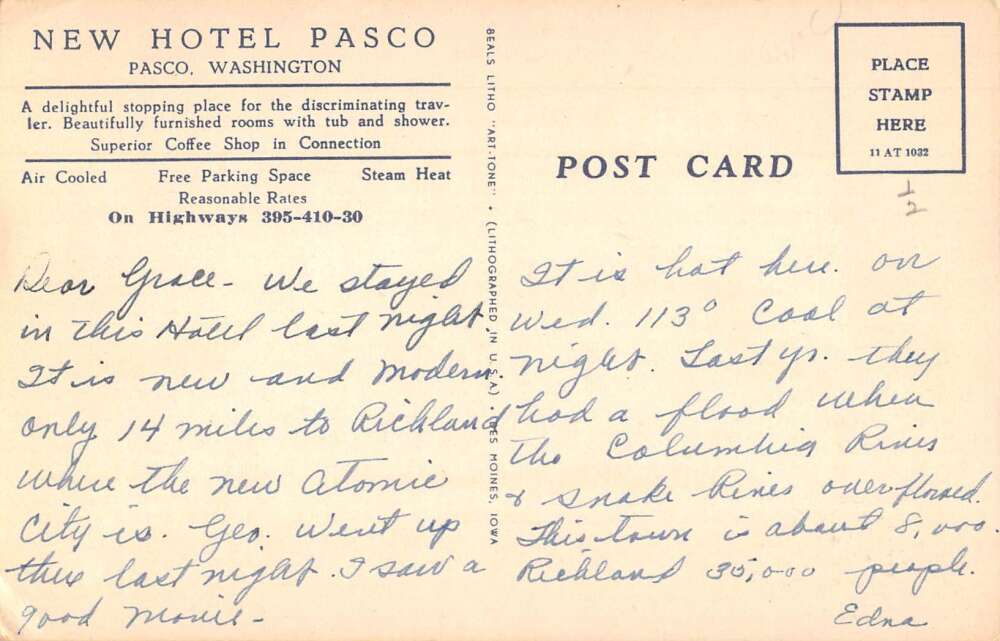 NEW HOTEL PASCO
PASCO, WASHINGTON
A delightful stopping place for the discriminating trav-
ler. Beautifully furnished rooms with tub and shower.
Superior Coffee Shop in Connection
Air Cooled Free Parking Space Steam Heat
Reasonable Rates
On Highways 395-410-30
Dear Grace - We stayed
in this Hotel last night.
It is new and modern.
only 14 miles to Richland
where the new atomic
City is. Geo. went up
there last night. I saw a
good movie -
BEALS LITHO "ART-TONE" • (LITHOGRAPHED IN U.S.A.) DES MOINES, IOWA
POST CARD
PLACE
STAMP
HERE
11 AT 1032
1/2
It is hot here. on
Wed. 113° Cool at
night. Last yr. they
had a flood when
the Columbia River
& Snake River overflowed.
This town is about 8,000
Richland 35,000 people.
Edna